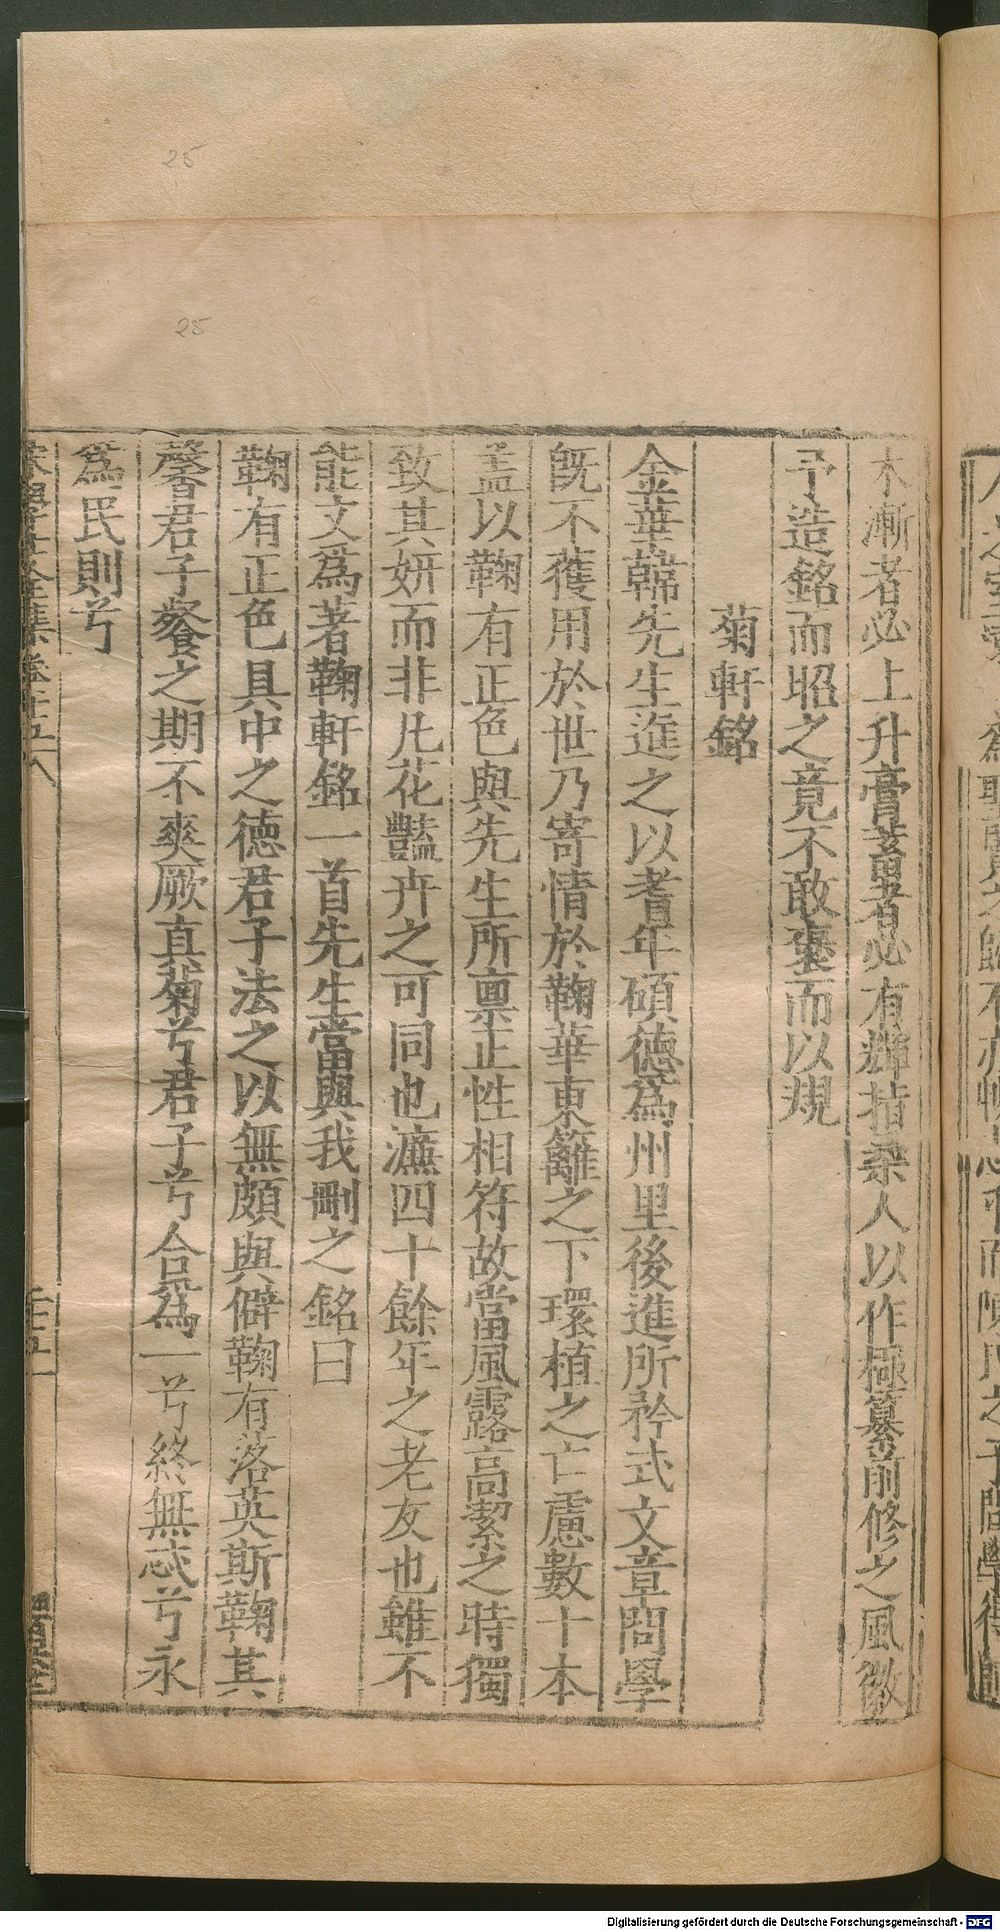 木漸者必上升膏蓄者必有輝揩柔人以作極纂前修之風徽
予造銘而昭之竟不敢褒而以規
菊軒銘
金華韓先生進之以耆年碩德爲州里後進所矜式文章問學
旣不獲用於世乃寄情於鞠華東籬之下環植之亡慮數十本
盖以鞠有正色與先生所禀正性相符故當風露高潔之時獨
致其妍而非凡花豔卉之可同也濂四十餘年之老友也雖不
能文爲著鞠軒銘一首先生當與我刪之銘曰
鞠有正色具中之德君子法之以無頗與僻鞠有落英斯鞠其
馨君子餐之期不爽厥真菊兮君子兮合爲一兮終無忒兮永
爲民則兮
宋學士全集卷十五
25
25
Digitalisierung gefördert durch die Deutsche Forschungsgemeinschaft - DFG